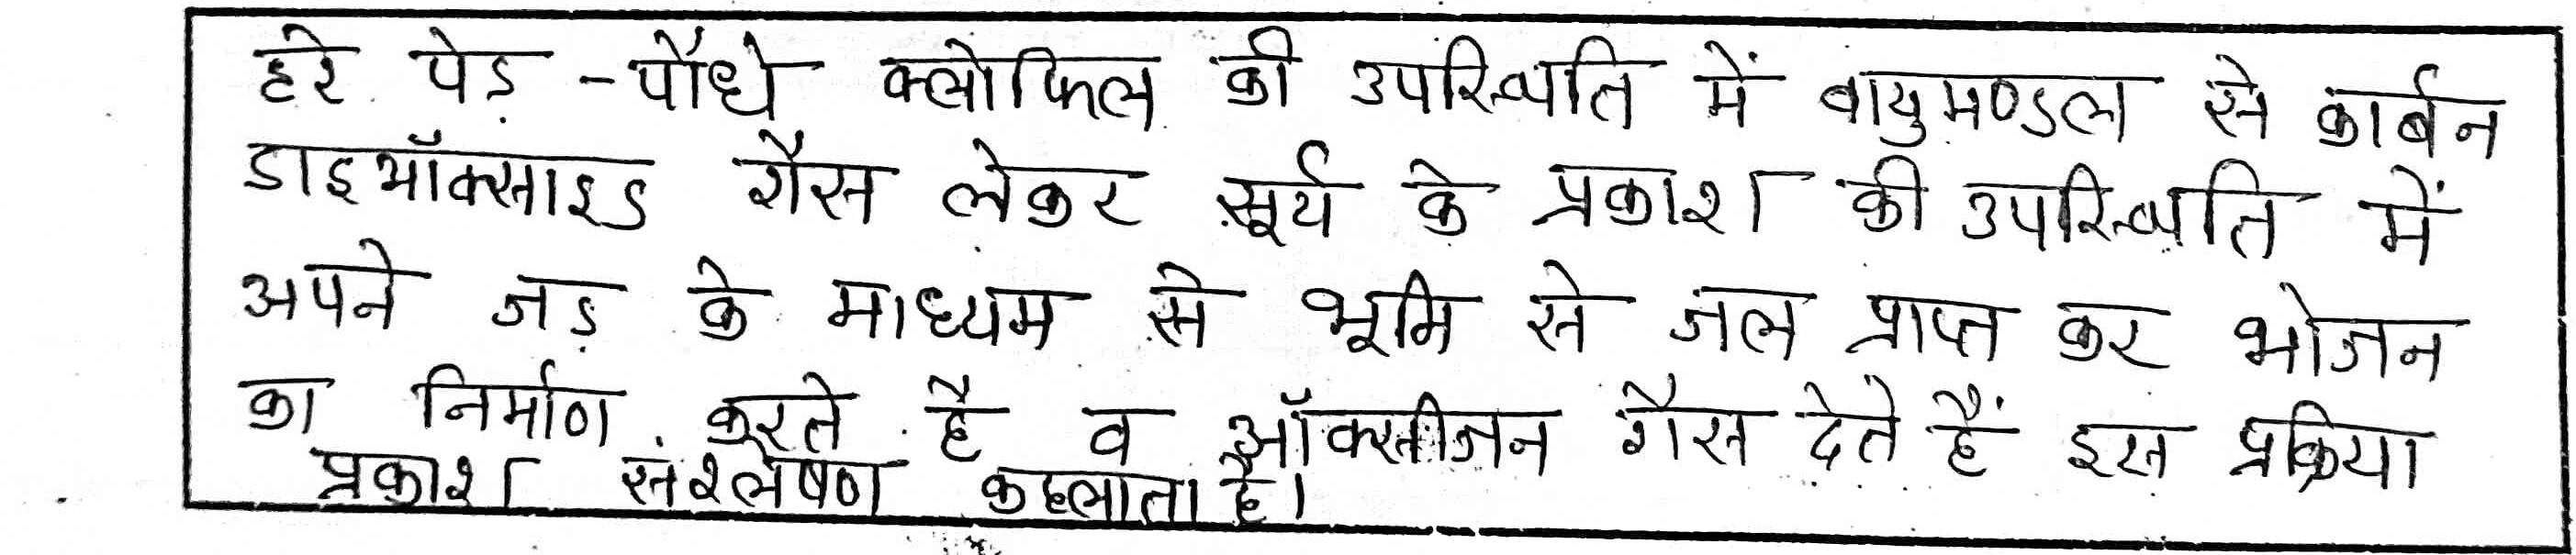 हरे पेड़ -पौधे क्लोफिल की उपस्थिति में वायुमण्डल से कार्बन
डाइऑक्साइड गैस लेकर सूर्य के प्रकाश की उपस्थिति में
अपने जड़ के माध्यम से भूमि से जल प्राप्त कर भोजन
का निर्माण करते है व ऑक्सीजन गैस देते हैं इस प्रक्रिया
प्रकाश संश्लेषण कहलाता है।